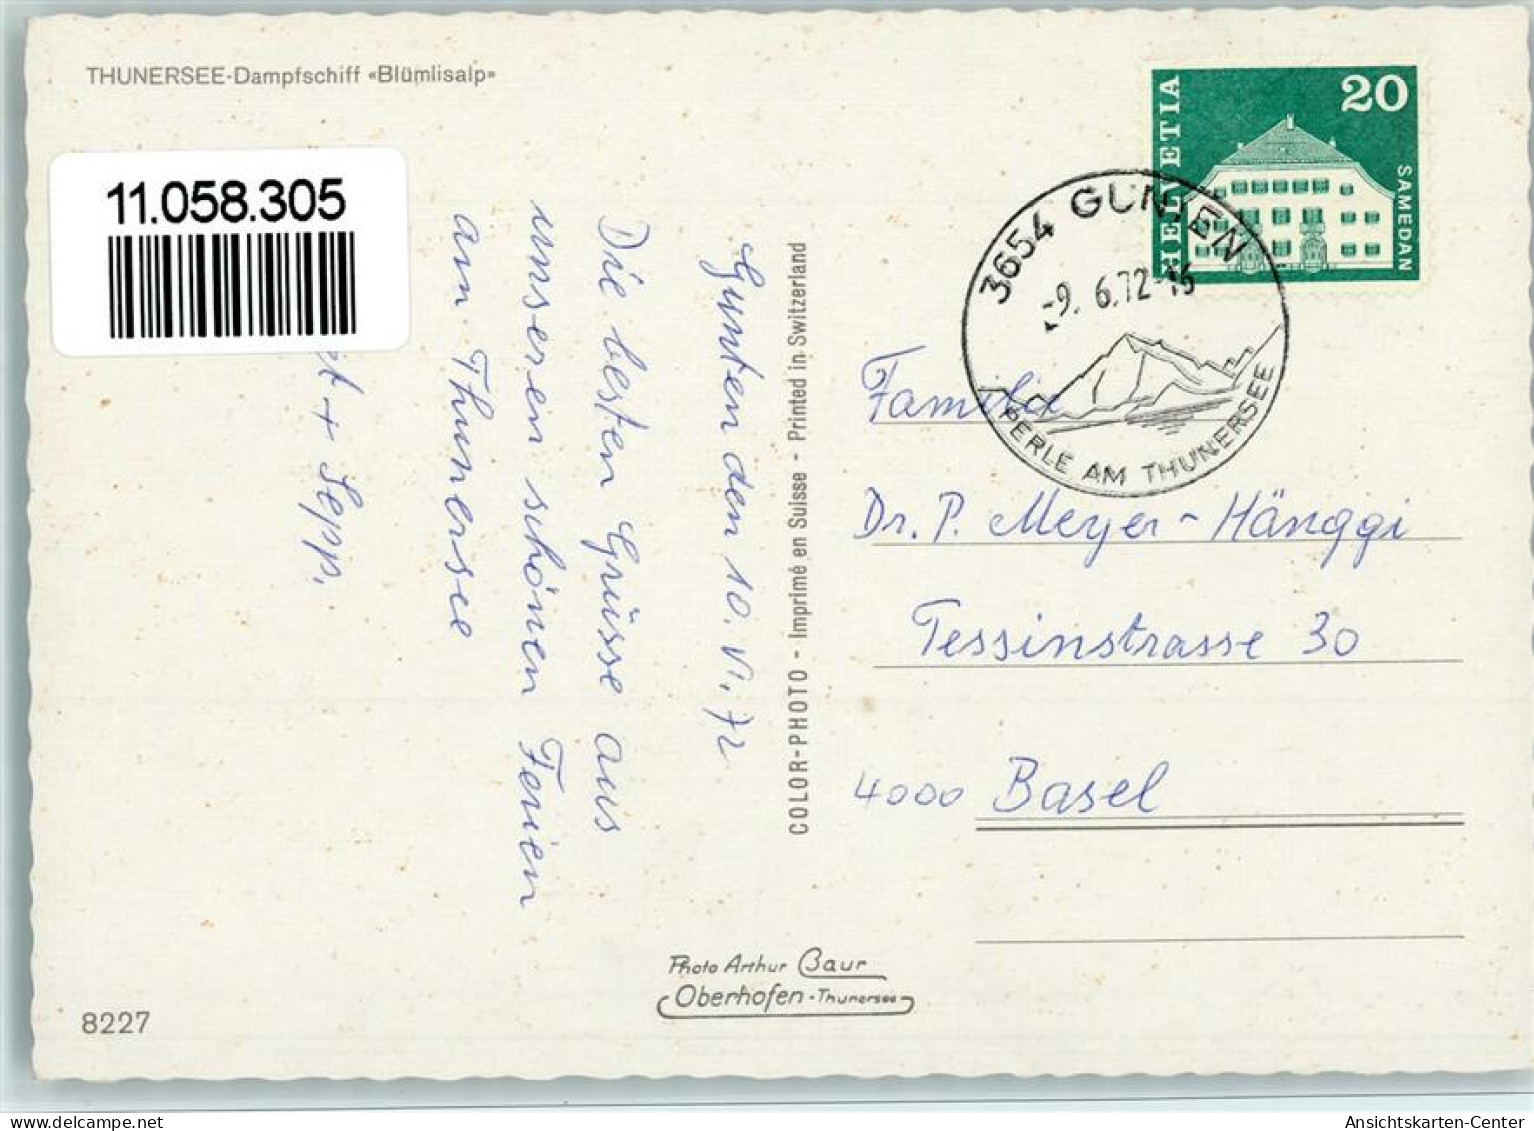 THUNERSEE-Dampfschiff «Blümlisalp»
11.058.305
Gunten den 10. VI. 72
Die besten Grüsse aus
unseren schönen Ferien
am Thunersee
+ Sepp.
COLOR-PHOTO - Imprimé en Suisse - Printed in Switzerland
HELVETIA
20
SAMEDAN
3654 GUNTEN
-9. 6.72-16
PERLE AM THUNERSEE
Familie
Dr. P. Meyer-Hänggi
Tessinstrasse 30
4000 Basel
Photo Arthur Baur
Oberhofen - Thunersee
8227
www.delcampe.net
Ansichtskarten-Center